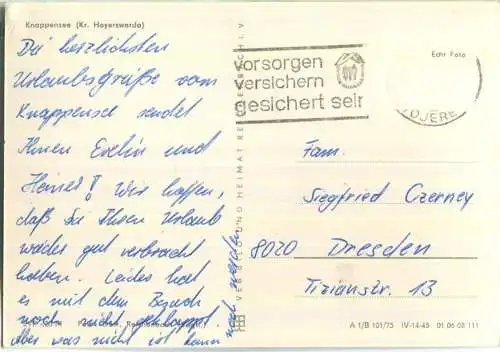 Knappensee (Kr. Hoyerswerda)
Die herzlichsten
Urlaubsgrüße vom
Knappensee sendet
Ihnen Evelin und
Heiner! Wir hoffen,
daß Sie Ihren Urlaub
wieder gut verbracht
haben. Leider hat
es mit dem Besuch
noch nicht geklappt.
Aber was nicht ist kann
noch werden
VEB BILD UND HEIMAT REICHENBACH I. V.
vorsorgen
versichern
gesichert sein
Echt Foto
Fam.
Siegfried Czerney
8020 Dresden
Tizianstr. 13
A 1/B 101/75 IV-14-45 01 06 08 111